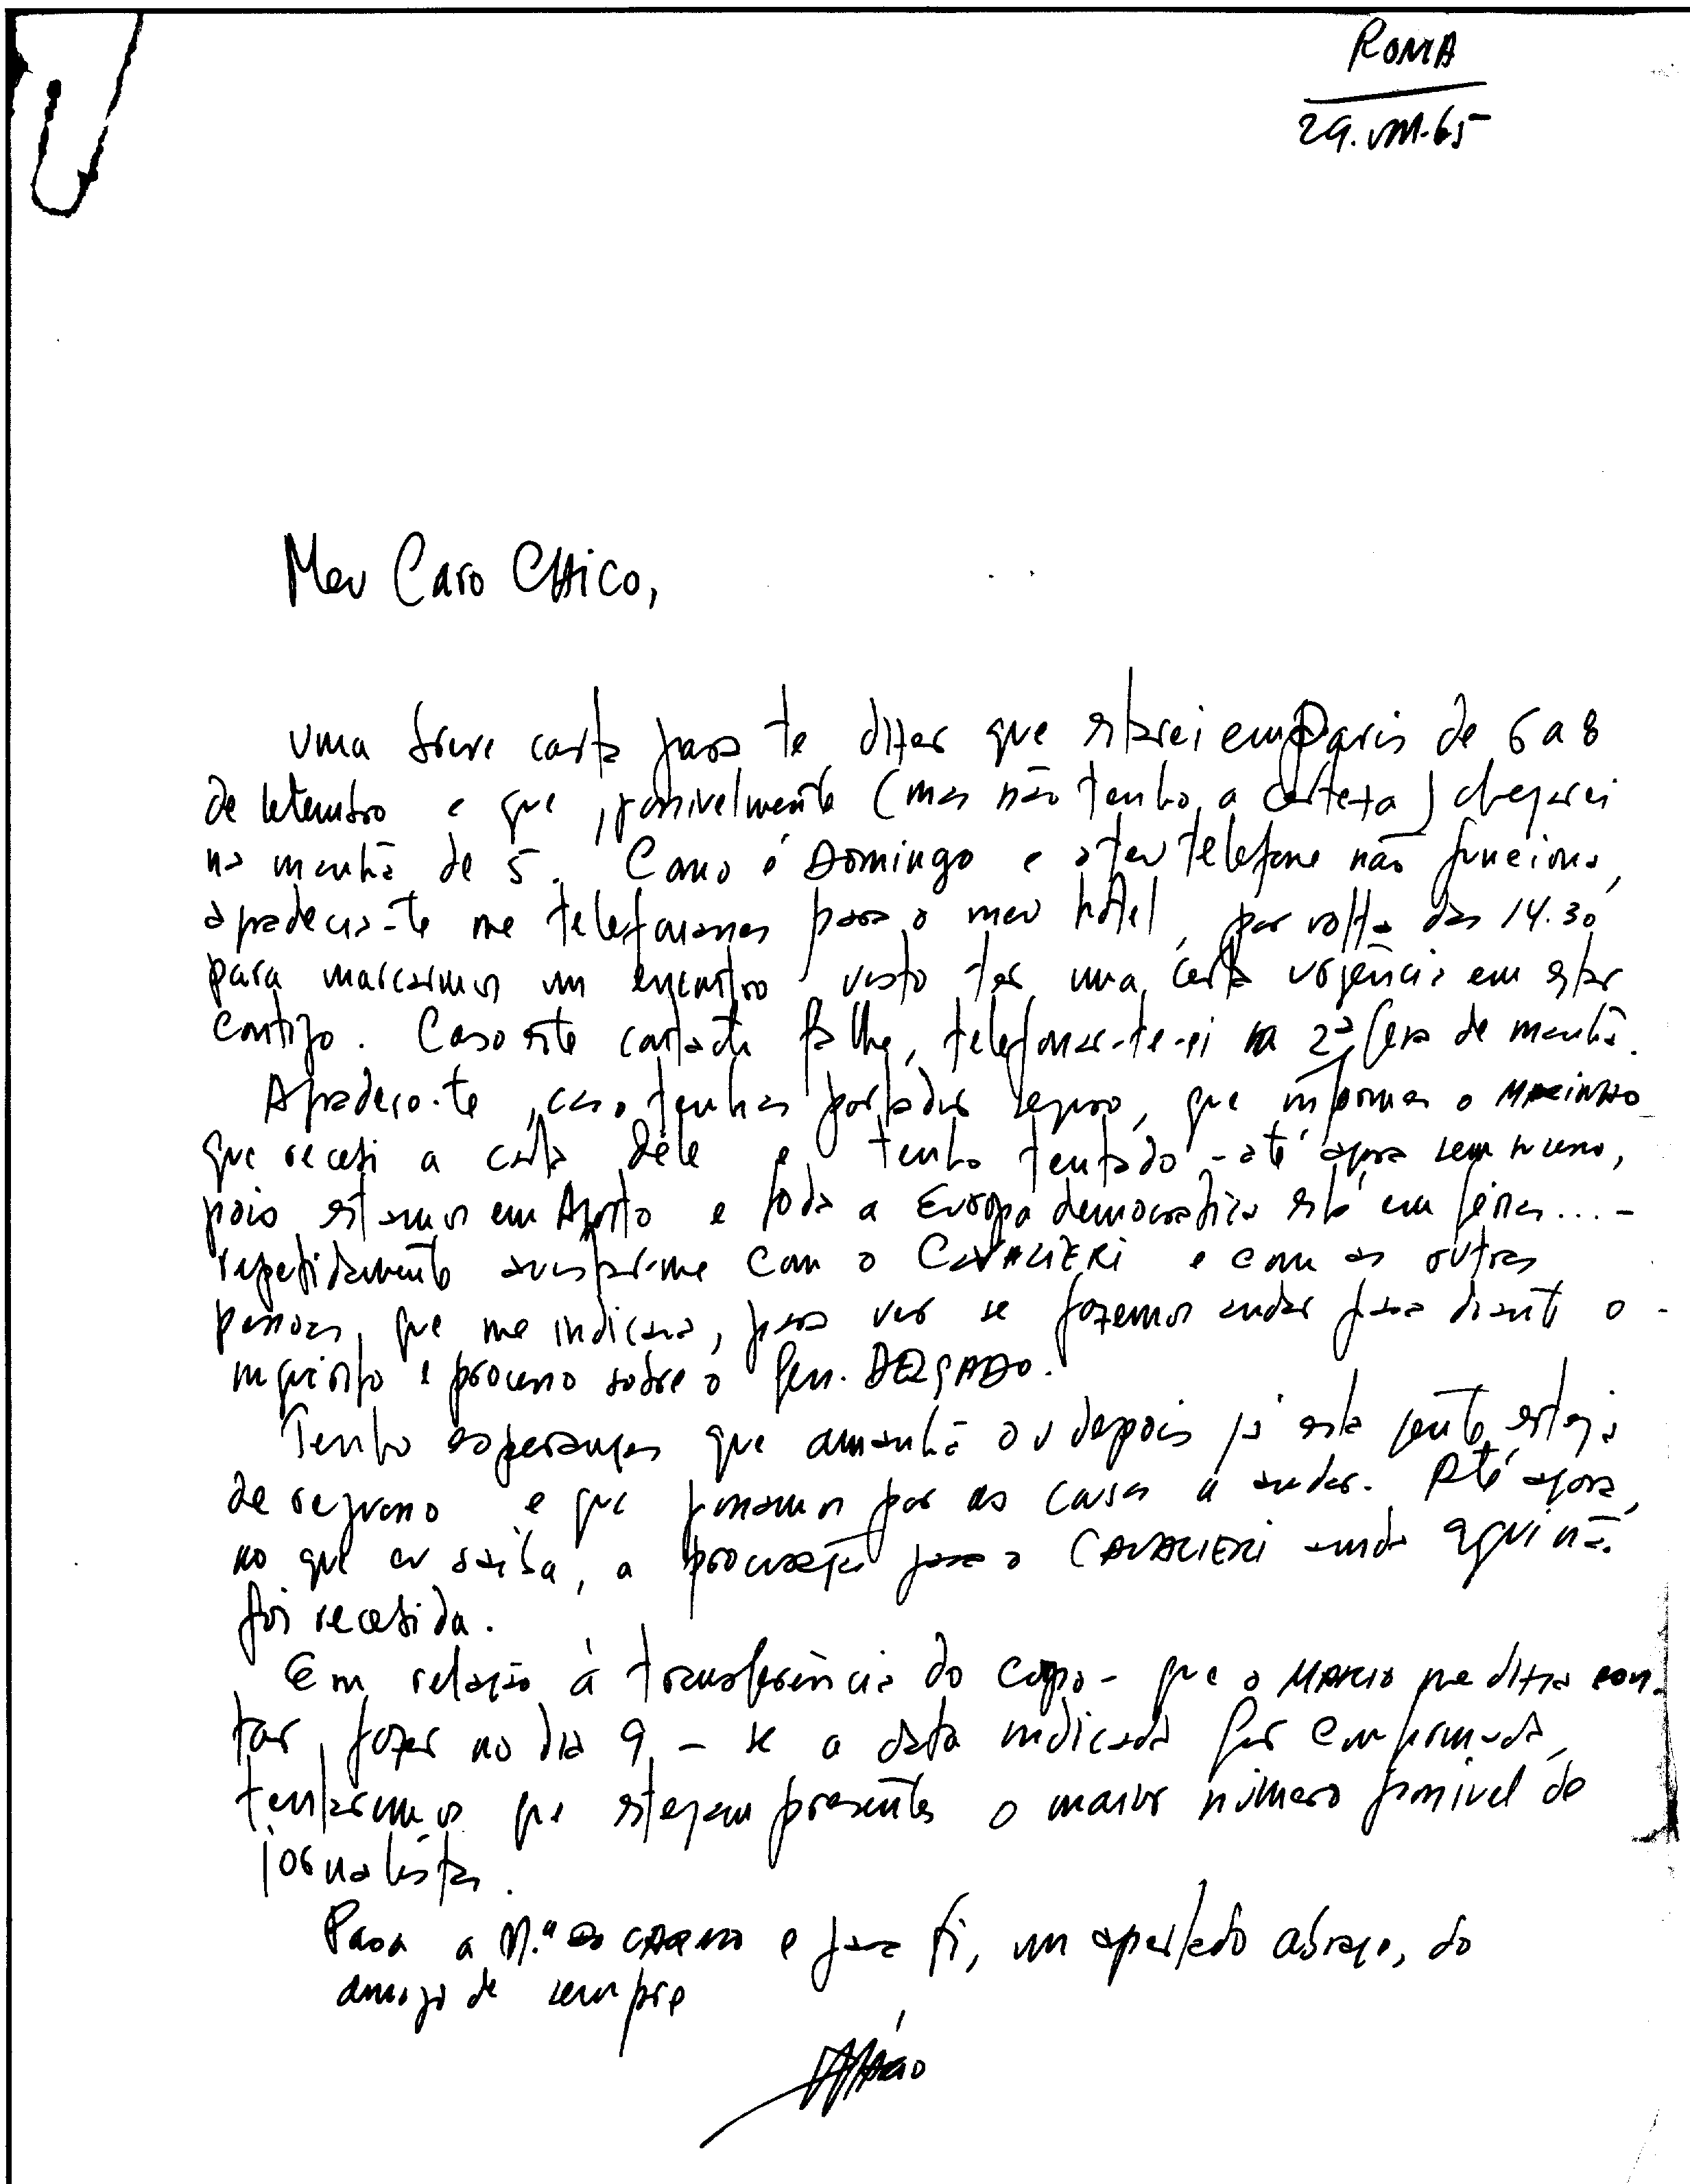 ROMA
29.VIII.65
Meu Caro CHICO,
Uma breve carta para te dizer que estarei em Paris de 6 a 8
de Setembro e que, possivelmente (mas não tenho a certeza) chegarei
na manhã de 5. Como é Domingo e o teu telefone não funciona,
agradecia-te me telefonasses para o meu hotel, por volta das 14.30
para marcarmos um encontro visto ter uma certa urgência em estar
contigo. Caso este contacto falhe, telefonar-te-ei na 2ª feira de manhã.
Agradeço-te, caso tenhas portador seguro, que informes o
que recebi a carta dele e tenho tentado - até agora sem sucesso,
pois estamos em Agosto e toda a Europa democratica está em férias... -
repetidamente avistar-me com o CAVALIERI e com as outras
pessoas, que me indicara, para ver se fazemos andar para diante o
inquérito e processo sobre o Gen. DELGADO.
Tenho esperanças que amanhã ou depois já esta gente esteja
de regresso e que possamos pôr as coisas a andar. Até agora,
no que eu saiba, a procuração para o CAVALIERI ainda aqui não
foi recebida.
Em relação à transferência do corpo - que o MÁRIO me dizia con-
tar fazer no dia 9 - se a data indicada for confirmada,
tentaremos que estejam presentes o maior número possivel de
jornalistas.
Para a M.ª do CARMO e para ti, um apertado abraço, do
amigo de sempre